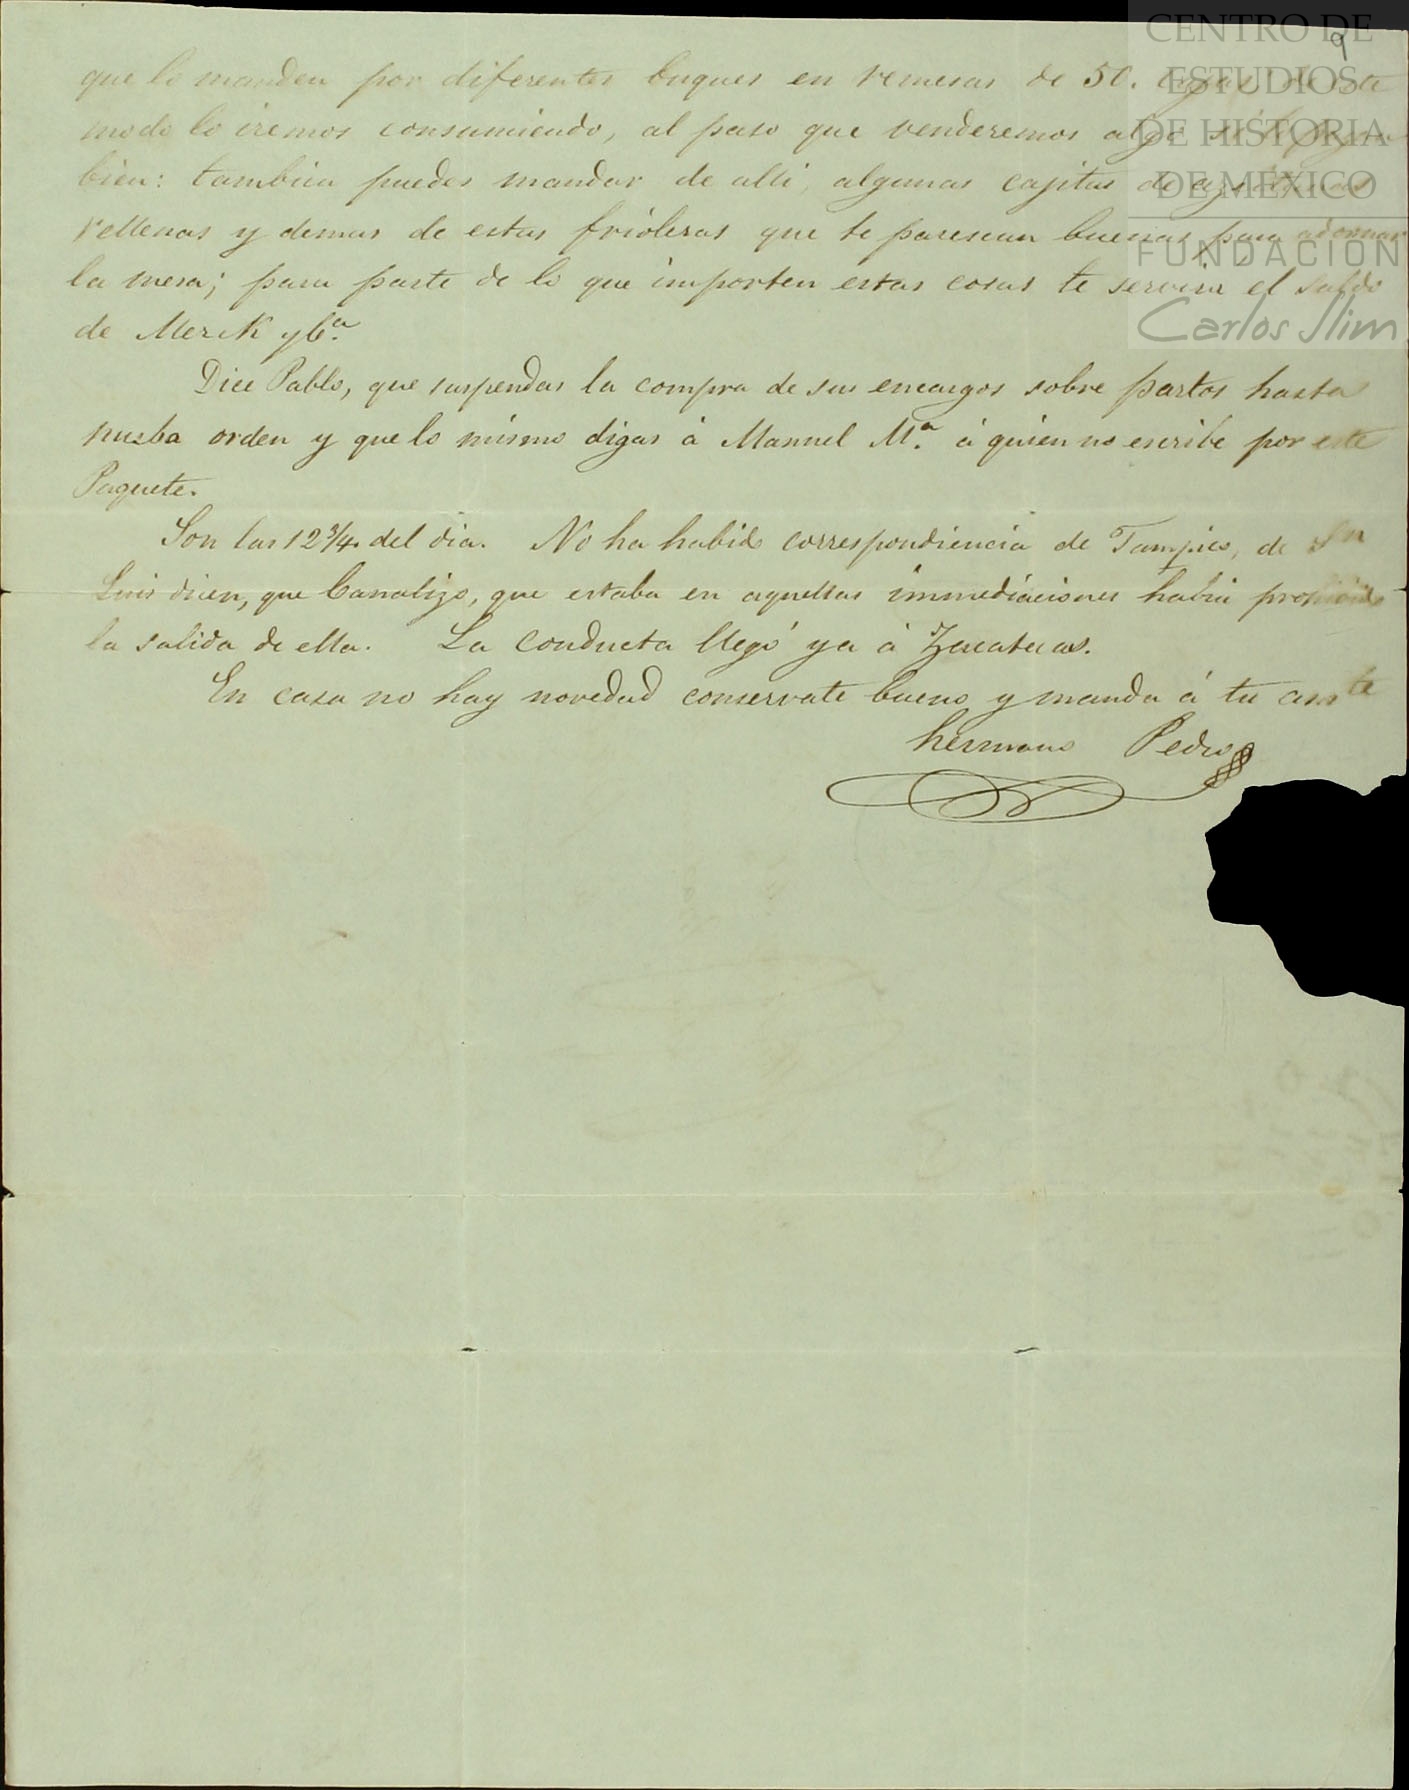 9
CENTRO DE
ESTUDIOS
DE HISTORIA
DE MÉXICO
FUNDACIÓN
Carlos Slim
que lo manden por diferentes buques en remesas de 50. cajas de este
modo lo iremos consumiendo, al paso que venderemos algo si lo pagan
bien: tambien puedes mandar de alli, algunas cajitas de azeitunas
rellenas y demas de estas frioleras que te parescan buenas para adornar
la mesa; para parte de lo que importen estas cosas te servira el saldo
de Merck y Cª.
Dice Pablo, que suspendas la compra de sus encargos sobre partos hasta
nueba orden y que lo mismo digas à Manuel M.ª à quien no escribe por este
Paquete.
Son las 12 3/4. del dia. No ha habido correspondiencia de Tampico, de Sn
Luis dicen, que Canalizo, que estaba en aquellas immediaciones habia prohibido
la salida de ella. La conducta llegó ya à Zacatecas.
En casa no hay novedad conservate bueno y manda á tu amte
hermano Pedro